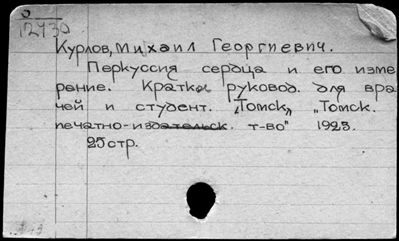 0
12430
Курлов, Михаил Георгиевич.
Перкуссия сердца и его изме
рение. Кратк. руковод. для вра
чей и студент. „Томск„ „Томск.
печатно-издательск. т-во" 1923.
25стр.